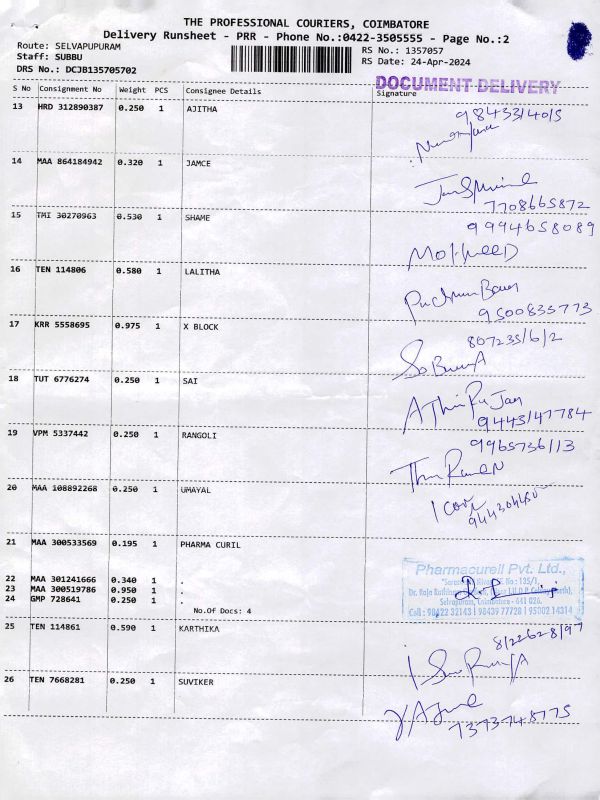 THE PROFESSIONAL COURIERS, COIMBATORE
Delivery Runsheet - PRR - Phone No.:0422-3505555 - Page No.:2
Route: SELVAPUPURAM
RS No.: 1357057
Staff: SUBBU
RS Date: 24-Apr-2024
DRS No.: DCJB135705702
DOCUMENT DELIVERY
S No Consignment No Weight PCS Consignee Details Signature
13 HRD 312890387 0.250 1 AJITHA
9843314015
14 MAA 864184942 0.320 1 JAMCE
7708665872
15 TMI 30270963 0.530 1 SHAME
9994658089
16 TEN 114806 0.580 1 LALITHA
9500835773
17 KRR 5558695 0.975 1 X BLOCK
8072351612
18 TUT 6776274 0.250 1 SAI
9443147784
19 VPM 5337442 0.250 1 RANGOLI
9965736113
20 MAA 108892268 0.250 1 UMAYAL
21 MAA 300533569 0.195 1 PHARMA CURIL
22 MAA 301241666 0.340 1 .
23 MAA 300519786 0.950 1 .
24 GMP 728641 0.250 1 .
No.Of Docs: 4
Pharmacurell Pvt. Ltd.,
Selvapuram, Coimbatore - 641 026.
Cell : 98422 32143 | 98439 77728 | 95002 14314
25 TEN 114861 0.590 1 KARTHIKA
8122628197
26 TEN 7668281 0.250 1 SUVIKER
7373748775